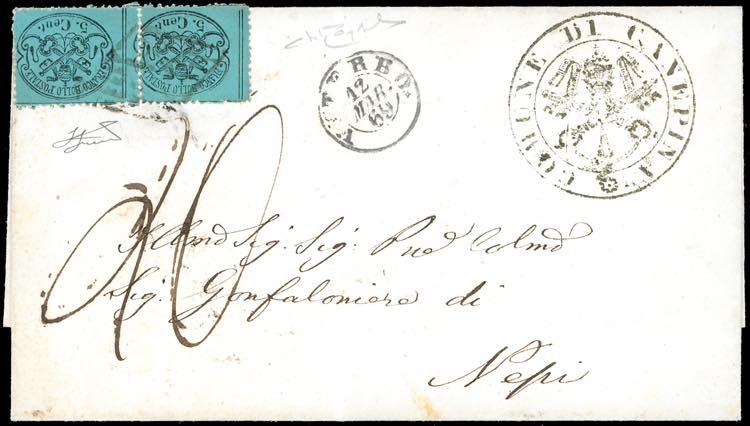 5 Cent.
FRANCO BOLLO POSTALE
5 Cent.
FRANCO BOLLO POSTALE
VITERBO
12
MAR.
69
COMUNE DI CANEPINA
Illmo Sig. Sig. Pne Colmo
Sig. Gonfaloniere di
Nepi